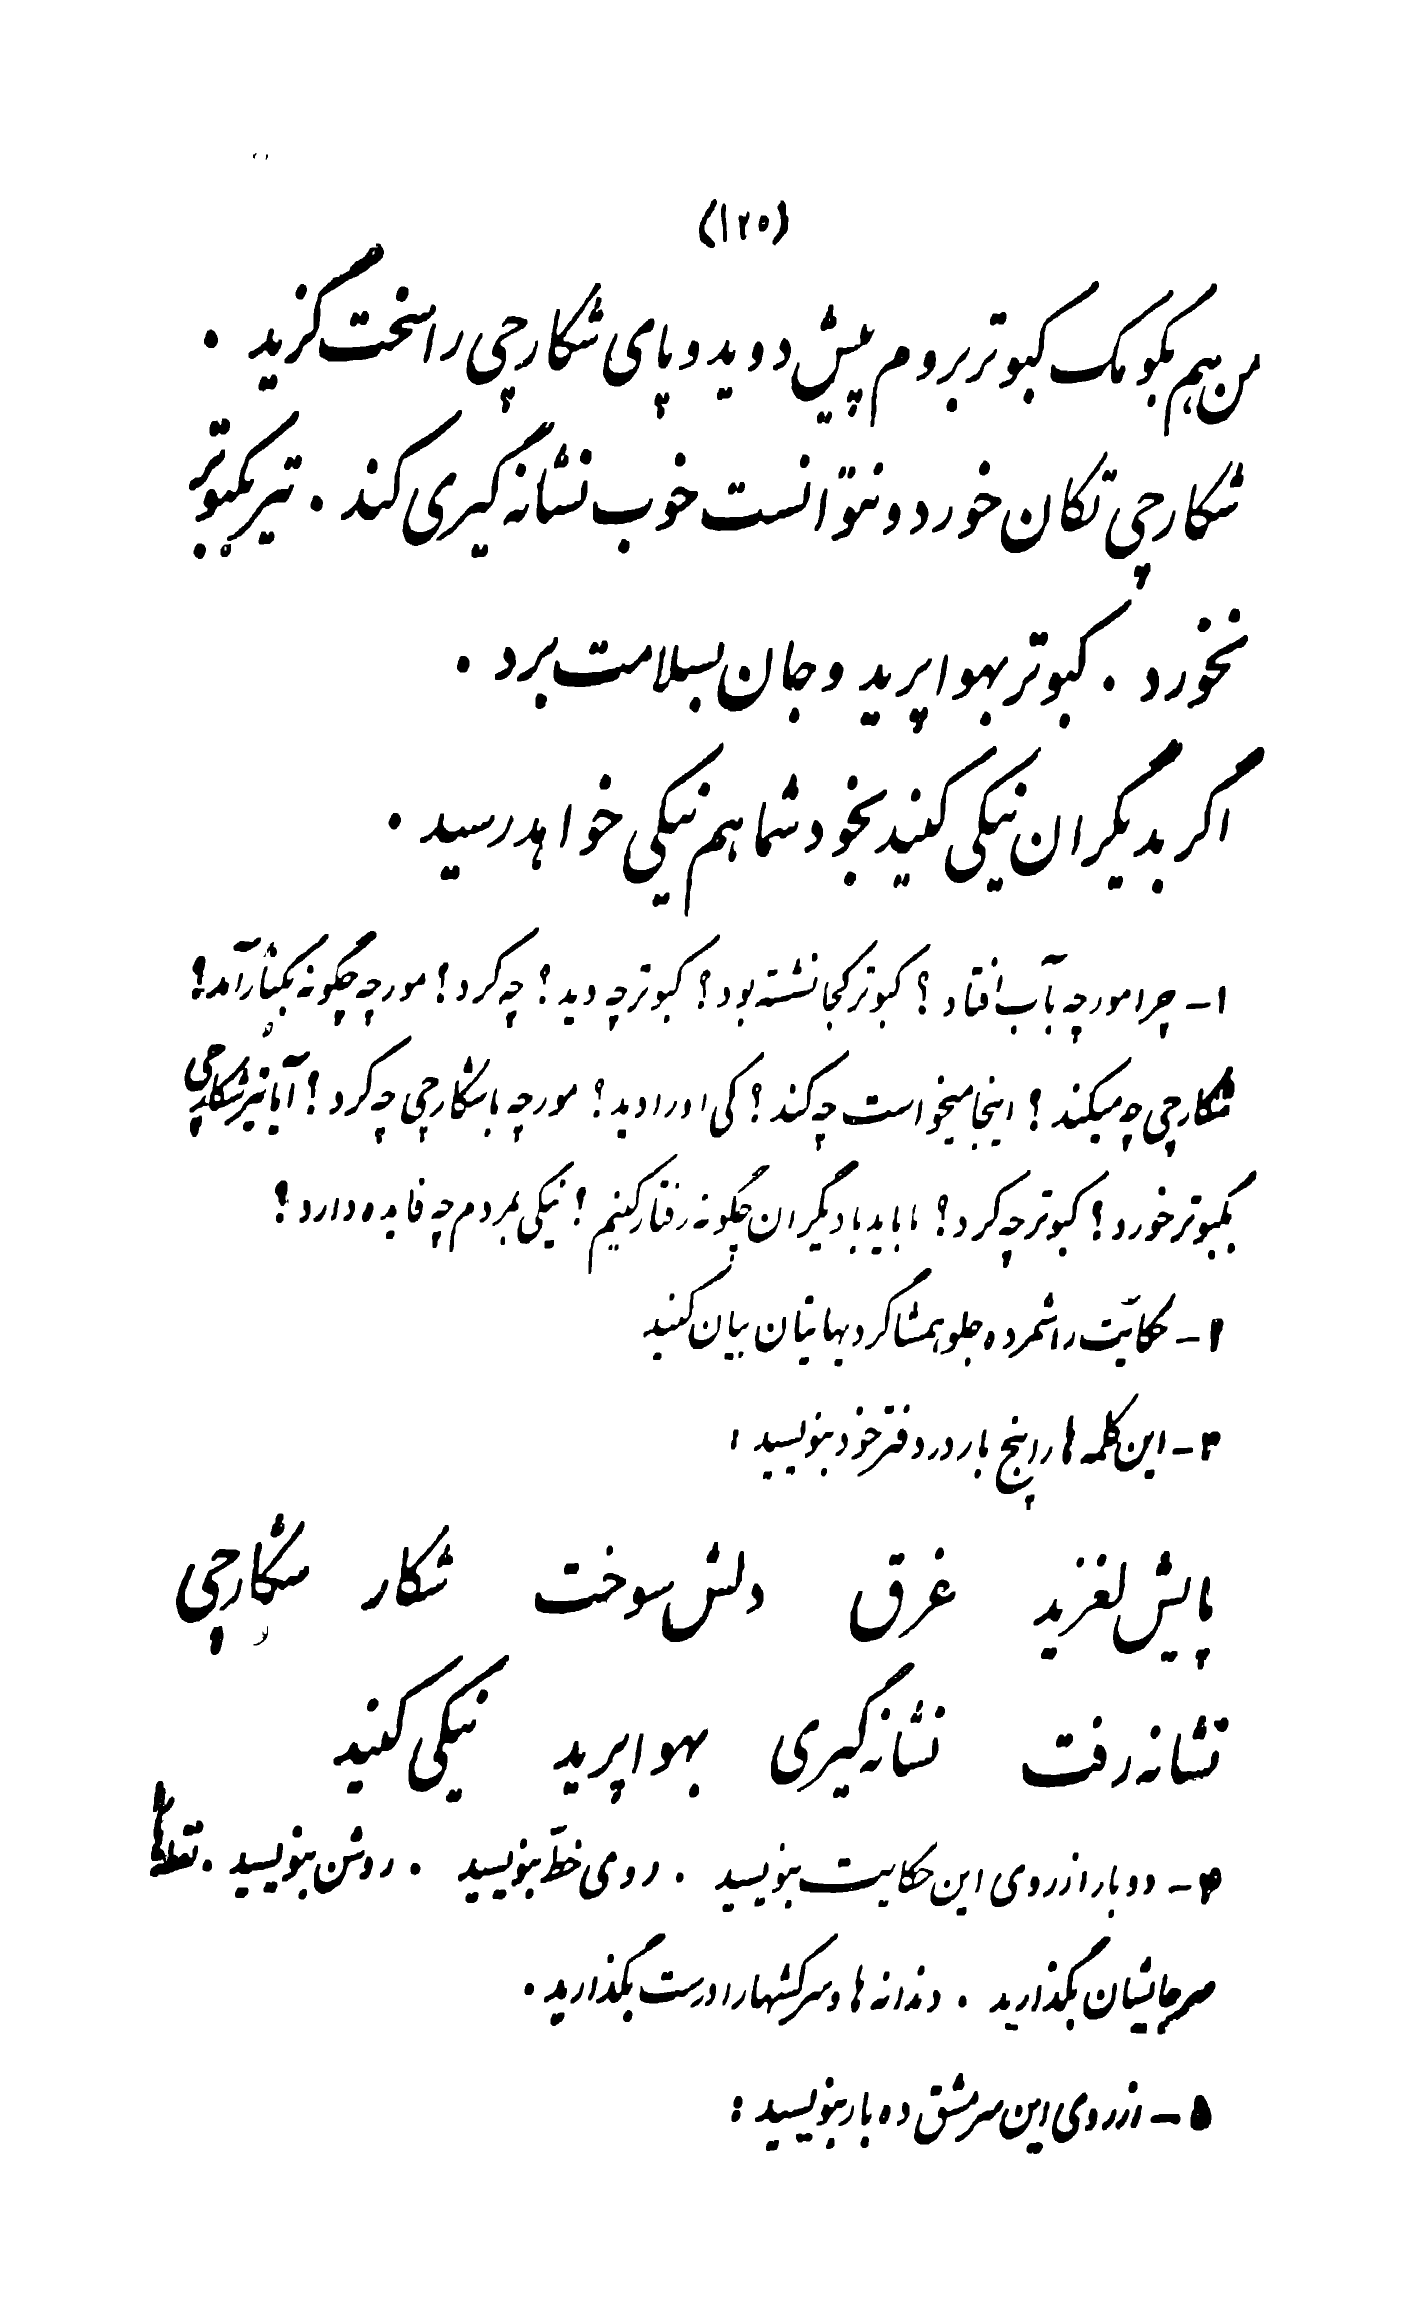 (۱۲۵)
من هم بکومک کبوتر بروم پیش دوید و پای شکارچی را سخت گزید .
شکارچی تکان خورد و نتوانست خوب نشانه گیری کند . تیر بکبوتر
نخورد . کبوتر بهوا پرید و جان بسلامت برد .
اگر بدیگران نیکی کنید بخود شما هم نیکی خواهد رسید .
۱ - چرا مورچه بآب افتاد ؟ کبوتر کجا نشسته بود ؟ کبوتر چه دید ؟ چه کرد ؟ مورچه چگونه بکنار آمد ؟
شکارچی چه میکند ؟ اینجا میخواست چه کند ؟ کی او را دید ؟ مورچه با شکارچی چه کرد ؟ آیا تیر شکارچی
بکبوتر خورد ؟ کبوتر چه کرد ؟ ما باید با دیگران چگونه رفتار کنیم ؟ نیکی بمردم چه فایده دارد ؟
۲ - حکایت را شمرده جلو همشاگردیهایتان بیان کنید
۳ - این کلمه ها را پنج بار در دفتر خود بنویسید :
پایش لغزید غرق دلش سوخت شکار شکارچی
نشانه رفت نشانه گیری بهوا پرید نیکی کنید
۴ - دو بار از روی این حکایت بنویسید . روی خط بنویسید . روشن بنویسید . نقطه ها
سر جایشان بگذارید . دندانه ها و سرکشها را درست بگذارید .
۵ - از روی این سرمشق ده بار بنویسید :